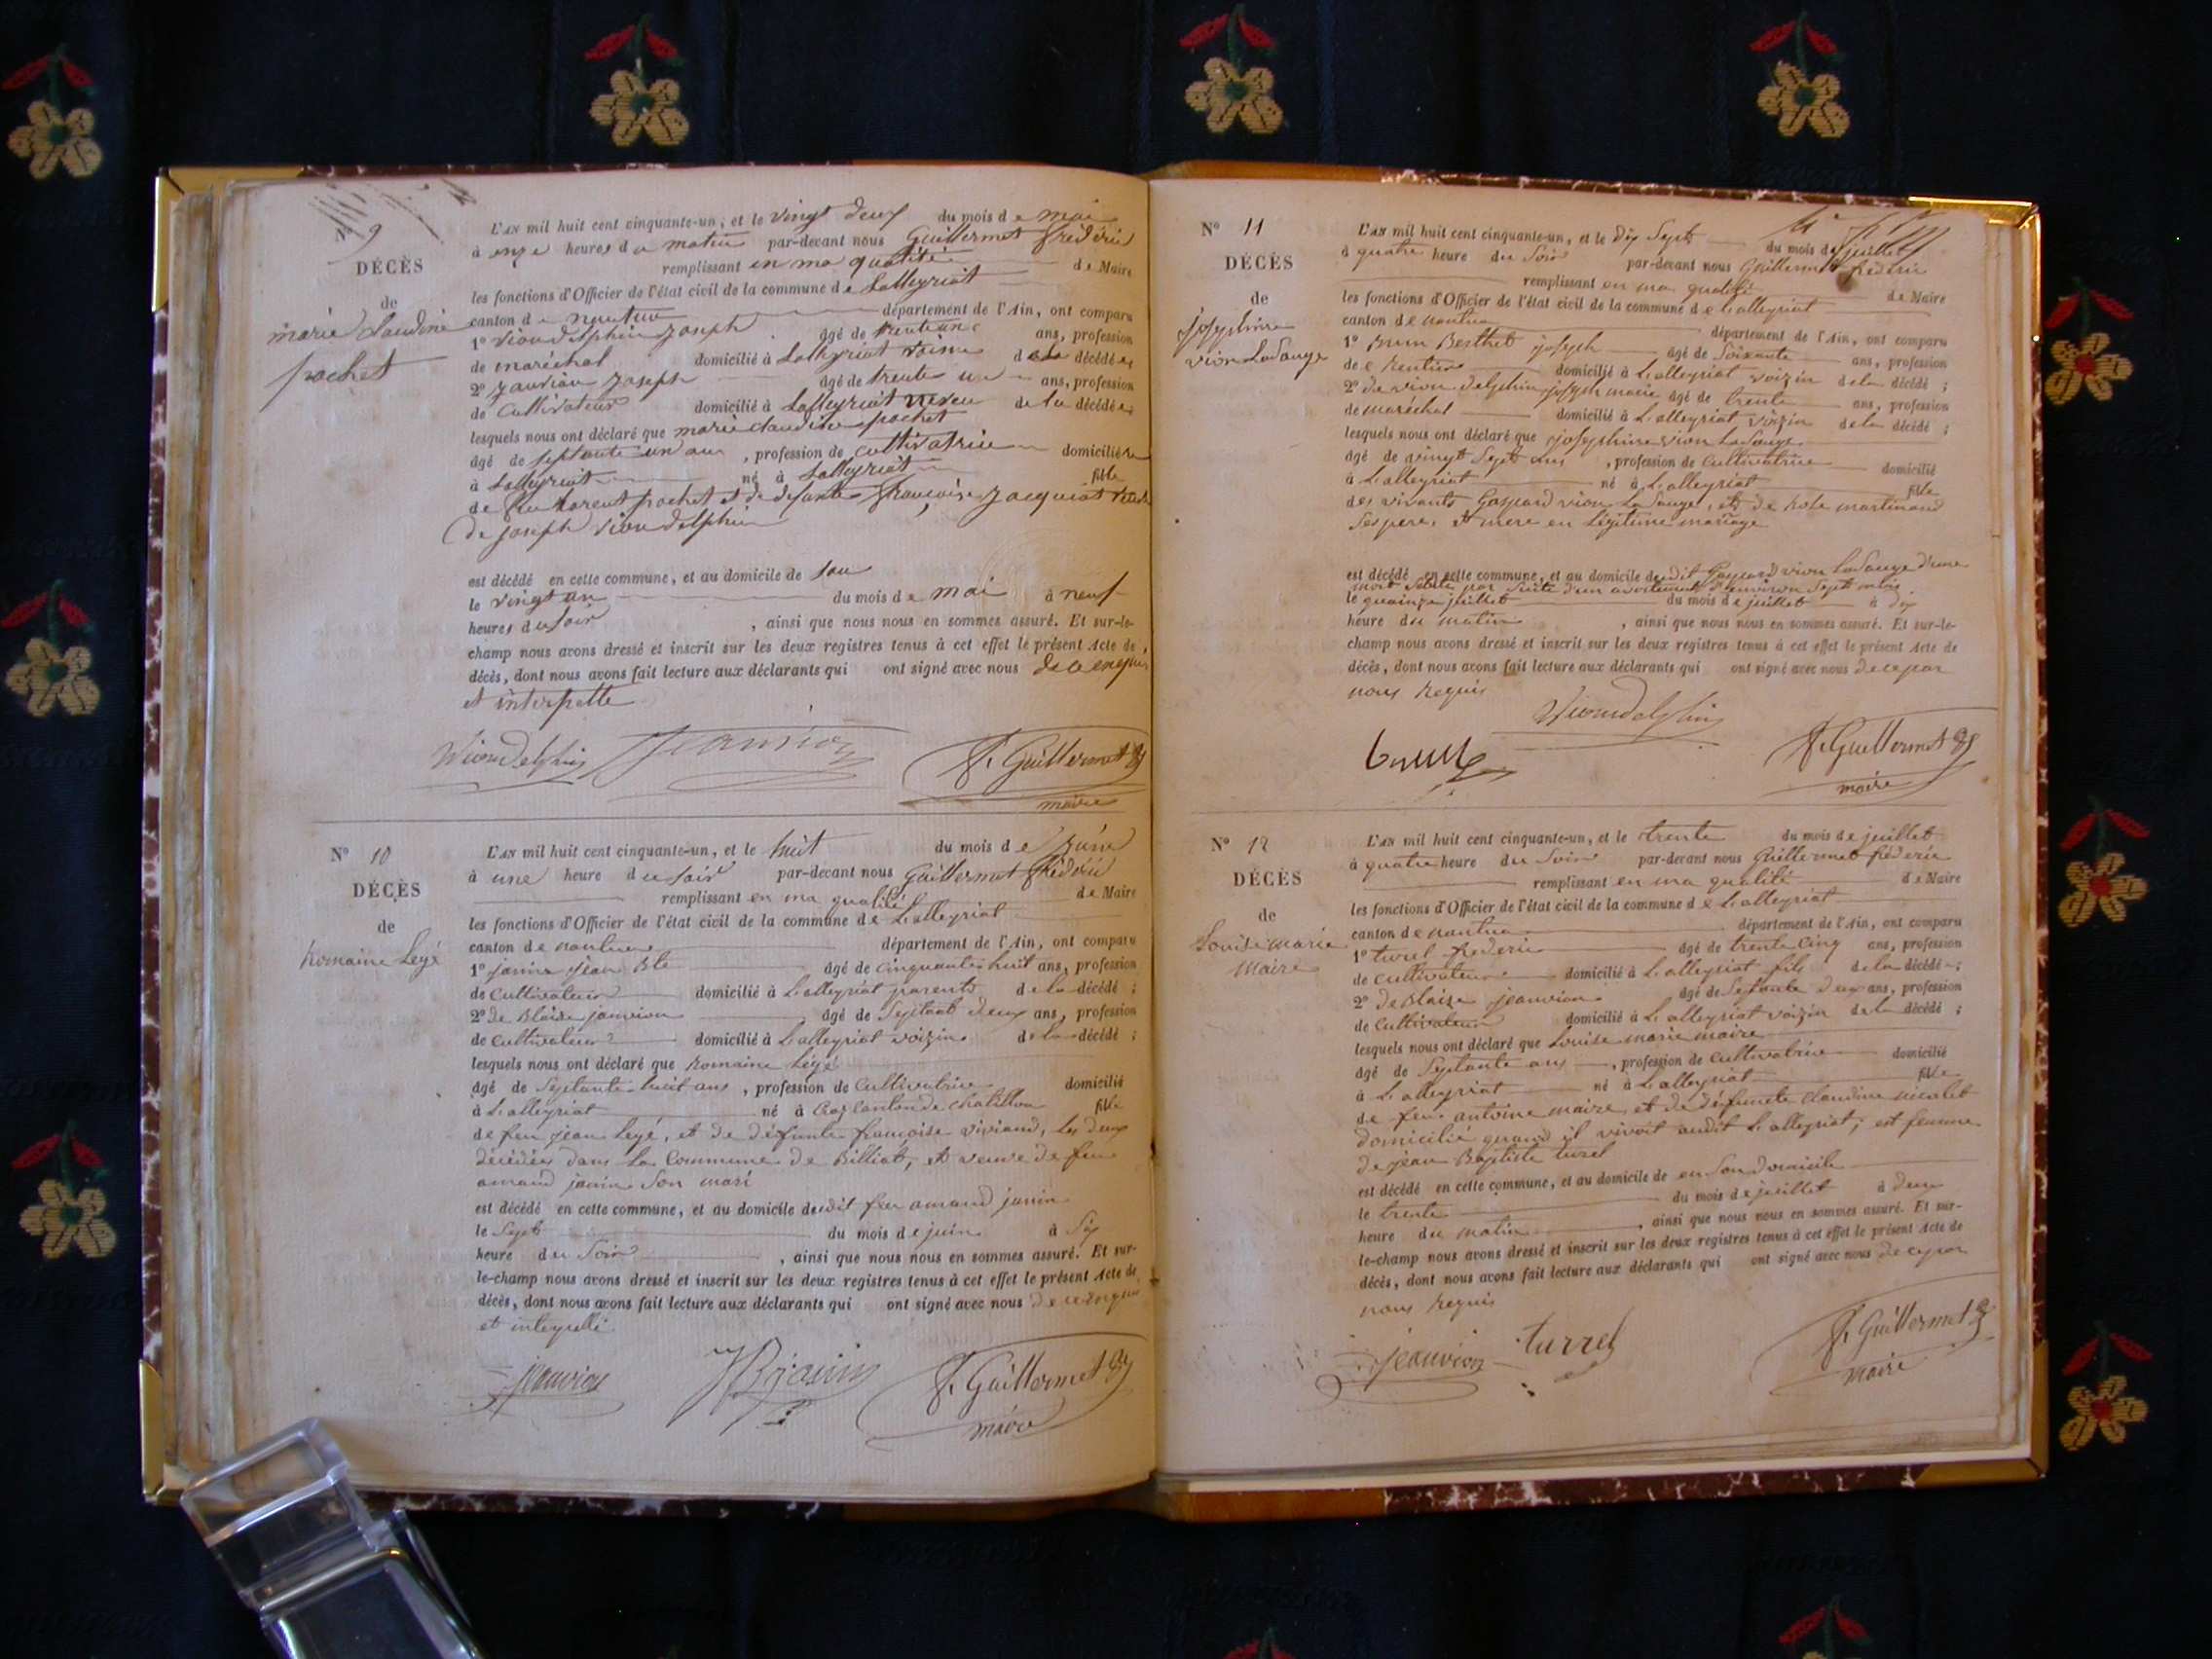 N° 9
DÉCÈS
de
marie Claudine
pochet
L'AN mil huit cent cinquante-un, et le vingt deux du mois de mai
à onze heures du matin par-devant nous Guillermet frédéric
remplissant en ma qualité de Maire
les fonctions d'Officier de l'état civil de la commune de Lalleyriat
canton de nantua département de l'Ain, ont comparu
1° viondelphin Joseph âgé de trente ans, profession
de maréchal domicilié à Lalleyriat voisin de la décédée
2° Janvion Joseph âgé de trente un ans, profession
de Cultivateur domicilié à Lalleyriat neveu de la décédée
lesquels nous ont déclaré que marie claudine pochet
âgé de septante un ans, profession de cultivatrice domiciliée
à Lalleyriat né à Lalleyriat fille
de feu Laurent pochet et de defunte françoise Jacquiot veuve
de joseph viondelphin
est décédé en cette commune, et au domicile de son
le vingt un du mois de mai à neuf
heures du soir, ainsi que nous nous en sommes assuré. Et sur-le-
champ nous avons dressé et inscrit sur les deux registres tenus à cet effet le présent Acte de
décès, dont nous avons fait lecture aux déclarants qui ont signé avec nous de ce enquis
et interpellé
Viondelphin Jeanvion F. Guillermet
maire
N° 10
DÉCÈS
de
Romaine Legé
L'AN mil huit cent cinquante-un, et le huit du mois de juin
à une heure du soir par-devant nous Guillermet frédéric
remplissant en ma qualité de Maire
les fonctions d'Officier de l'état civil de la commune de Lalleyriat
canton de nantua département de l'Ain, ont comparu
1° janin jean Bte âgé de cinquante huit ans, profession
de cultivateur domicilié à Lalleyriat parent de la décédé ;
2° de Blaise janvion âgé de Septante deux ans, profession
de cultivateur domicilié à Lalleyriat voizin de la décédé ;
lesquels nous ont déclaré que Romaine Légé
âgé de Septante huit ans, profession de Cultivatrice domicilié
à Lalleyriat né à canton de Chatillon fille
de feu jean Legé, et de défunte françoise viviand, les deux
décédés dans la Commune de Billiat, et veuve de feu
amand janin Son mari
est décédé en cette commune, et au domicile dudit feu amand janin
le Sept du mois de juin à Six
heure du Soir, ainsi que nous nous en sommes assuré. Et sur-
le-champ nous avons dressé et inscrit sur les deux registres tenus à cet effet le présent Acte de
décès, dont nous avons fait lecture aux déclarants qui ont signé avec nous de ce enquis
et interpellé
jeanvion JB janin F. Guillermet
maire
N° 11
DÉCÈS
de
josephine
vion LaSauge
L'AN mil huit cent cinquante-un, et le dix Sept du mois de juillet
à quatre heure du Soir par-devant nous Guillermet fréderic
remplissant en ma qualité de Maire
les fonctions d'Officier de l'état civil de la commune de Lalleyriat
canton de nantua département de l'Ain, ont comparu
1° Brun Berthet joseph âgé de Soixante ans, profession
de Rentier domicilié à Lalleyriat voizin de la décédé ;
2° de vion delphin joseph marie âgé de trente ans, profession
de maréchal domicilié à Lalleyriat voizin de la décédé ;
lesquels nous ont déclaré que josephine vion LaSauge
âgé de vingt Sept ans, profession de Cultivatrice domicilié
à Lalleyriat né à Lalleyriat fille
des vivants Gaspard vion LaSauge, et de Rose martinand
Ses pere et mere en Légitime mariage
est décédé en cette commune, et au domicile dudit Gaspard vion LaSauge d'une
mort Subite par Suite d'un avortement d'environ Sept mois
le quainze juillet du mois de juillet à dix
heure du matin, ainsi que nous nous en sommes assuré. Et sur-le-
champ nous avons dressé et inscrit sur les deux registres tenus à cet effet le présent Acte de
décès, dont nous avons fait lecture aux déclarants qui ont signé avec nous de ce par
nous Requis
Viondelphin
F. Guillermet
maire
N° 12
DÉCÈS
de
Louise marie
Maire
L'AN mil huit cent cinquante-un, et le trente du mois de juillet
à quatre heure du Soir par-devant nous Guillermet fréderic
remplissant en ma qualité de Maire
les fonctions d'Officier de l'état civil de la commune de Lalleyriat
canton de nantua département de l'Ain, ont comparu
1° turel frederic âgé de trente Cinq ans, profession
de cultivateur domicilié à Lalleyriat fils de la décédé ;
2° de Blaize jeanvion âgé de Septante deux ans, profession
de Cultivateur domicilié à Lalleyriat voizin de la décédé ;
lesquels nous ont déclaré que Louise marie maire
âgé de Septante ans, profession de cultivatrice domicilié
à Lalleyriat né à Lalleyriat fille
de feu antoine maire, et de défuncte claudine nicolet
domicilié quand il vivoit audit Lalleyriat, est femme
de jean Baptiste turel
est décédé en cette commune, et au domicile de en Son domicile
le trente du mois de juillet à deux
heure du matin, ainsi que nous nous en sommes assuré. Et sur-
le-champ nous avons dressé et inscrit sur les deux registres tenus à cet effet le présent Acte de
décès, dont nous avons fait lecture aux déclarants qui ont signé avec nous de ce par
nous Requis
jeanvion turrel F. Guillermet
maire